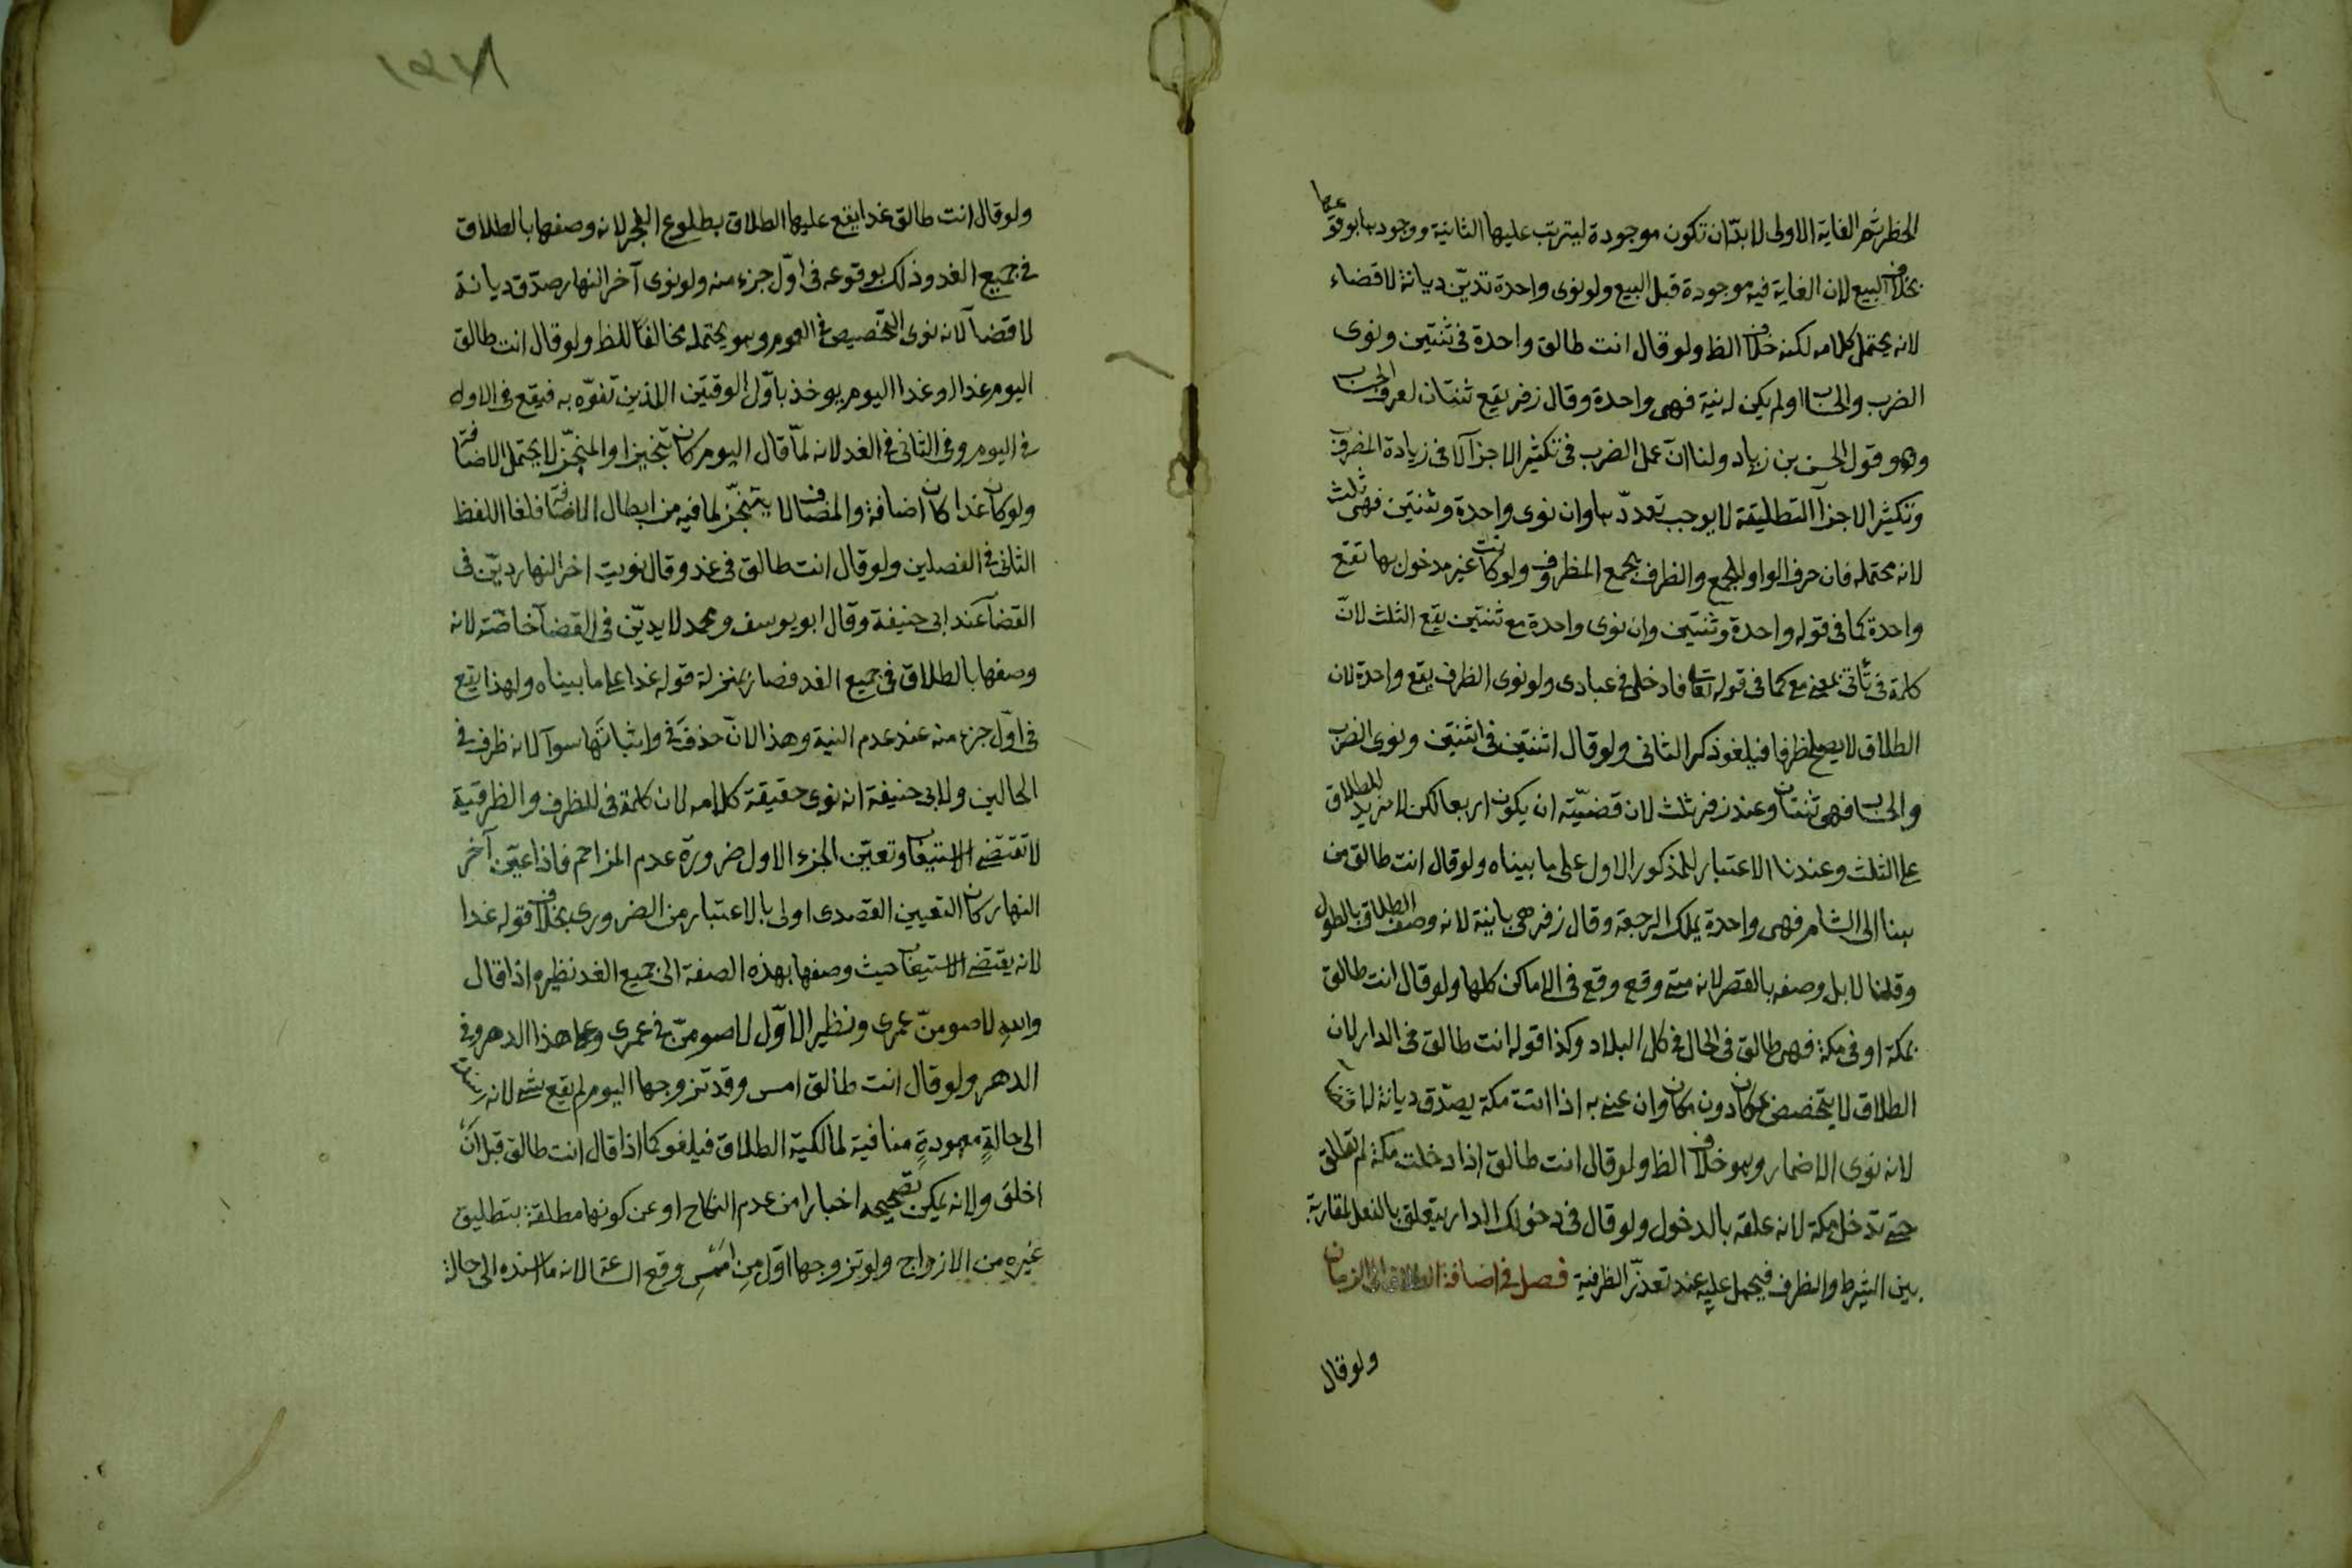 الحظر ثم الغاية الاولى لا بدّ ان تكون موجودة ليترتب عليها الثانية ووجودها بوقوعها
بخلاف البيع لان الغاية فيه موجودة قبل البيع ولو نوى واحدة تديّن ديانة لا قضاء
لانه يحتمل كلامه لكنه خلاف الظ ولو قال انت طالق واحدة في ثنتين ونوى
الضرب والحساب او لم يكن له نية فهى واحدة وقال زفر يقع ثنتان لعرف الحساب
وهو قول الحسن بن زياد ولنا انّ عمل الضرب في تكثير الاجزآ لا في زيادة المضروب
وتكثير الاجزآ التطليقة لا يوجب تعددّها وان نوى واحدة وثنتين فهى ثلث
لانه محتمله فان حرف الواو للجمع والظرف يجمع المظروف ولو كانت غير مدخول بها تقع
واحدة كما في قوله واحدة وثنتين وان نوى واحدة مع ثنتين يقع الثلث لانّ
كلمة في تأتي بمعنى مع كما في قوله تعالى فادخلى في عبادى ولو نوى الظرف يقع واحدة لان
الطلاق لا يصلح ظرفا فيلغو ذكر الثانى ولو قال اثنتين في اثنتين ونوى الضرب
والحساب فهى ثنتان وعند زفر ثلث لان قضيّته ان يكون اربعا لكن لا مزيد للطلاق
على الثلث وعندنا الاعتبار للمذكور الاول على ما بيناه ولو قال انت طالق من
هنا الى الشام فهى واحدة يملك الرجعة وقال زفر هى باينة لانه وصف الطلاق بالطول
وقلنا لا بل وصفه بالقصر لانه متى وقع وقع في الاماكن كلها ولو قال انت طالق
بمكة او في مكة فهى طالق في الحال في كل البلاد وكذا قوله انت طالق في الدار لان
الطلاق لا يتخصص بمكان دون مكان وان عنى به اذا اتت مكة يصدّق ديانة لا قضا
لانه نوى الاضمار وهو خلاف الظ ولو قال انت طالق اذا دخلت مكة لم تطلق
حتى تدخل مكة لانه علقه بالدخول ولو قال في دخولك الدار يتعلق بالفعل لمقاربة
بين الشرط والظرف فيحمل عليه عند تعذّر الظرفية فصل في اضافة الطلاق الى الزمان
ولو قال
ولو قال انت طالق غدا يقع عليها الطلاق بطلوع الفجر لانه وصفها بالطلاق
في جميع الغد وذلك بوقوعه في اوّل جزء منه ولو نوى آخر النهار صدّق ديانة
لا قضآ لانه نوى التخصيص في العموم وهو يحتمله مخالفًا للظ ولو قال انت طالق
اليوم غدا او غدا اليوم يوخذ باوّل الوقتين الذين تفوّه به فيقع في الاول
في اليوم وفي الثانى في الغد لانه لمّا قال اليوم كان تنجيزا والمنجّز لا يحتمل الاضافة
ولو كان غدا كان اضافة والمضاف لا يتنجّز لما فيه من ابطال الاضافة فلغا اللفظ
الثانى في الفصلين ولو قال انت طالق في غد وقال نويت اخر النهار ديّن في
القضآ عند ابى حنيفة وقال ابو يوسف ومحمد لا يديّن في القضآ خاصّة لانه
وصفها بالطلاق في جميع الغد فصار بمنزلة قوله غدا على ما بيناه ولهذا يقع
في اوّل جزء منه عند عدم النية وهذا لانّ حذف في واثباتها سوآ لانه ظرف في
الحالين ولابى حنيفة انه نوى حقيقة كلامه لان كلمة في للظرف والظرفية
لا تقتضى الاستيعاب وتعيّن الجزء الاول ضرورة عدم المزاحم فاذا عيّن آخر
النهار كان التعيين القصدى اولى بالاعتبار من الضرورى بخلاف قوله غدا
لانه يقتضى الاستيعاب حيث وصفها بهذه الصفة الى جميع الغد نظيره اذا قال
والله لاصومنّ عمرى ونظير الاوّل لاصومنّ في عمرى وعلى هذا الدهر وفي
الدهر ولو قال انت طالق امس وقد تزوجها اليوم لم يقع شى لانه اسنده
الى حالةٍ معهودةٍ منافية لمالكية الطلاق فيلغو كما اذا قال انت طالق قبل ان
اخلق ولانه يمكن تصحيحه اخبارا من عدم النكاح او عن كونها مطلقة بتطليق
غيره من الازواج ولو تزوجها اوّل من امس وقع الساعة لانه ما اسنده الى حالة